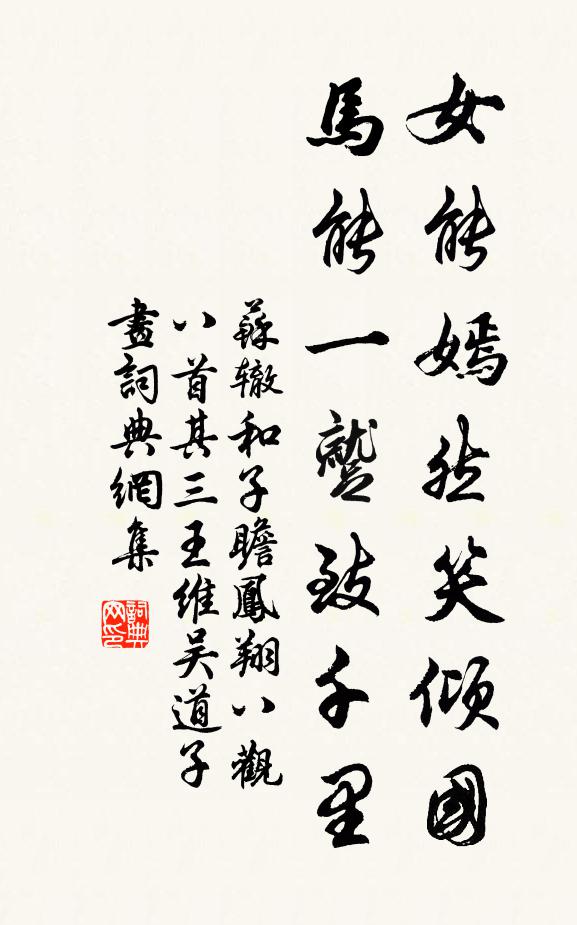 女能嫣然笑傾國
馬能一蹵致千里
蘇轍和子瞻鳳翔八觀
八首其三王維吴道子
畫詞典網集
詞典
网印